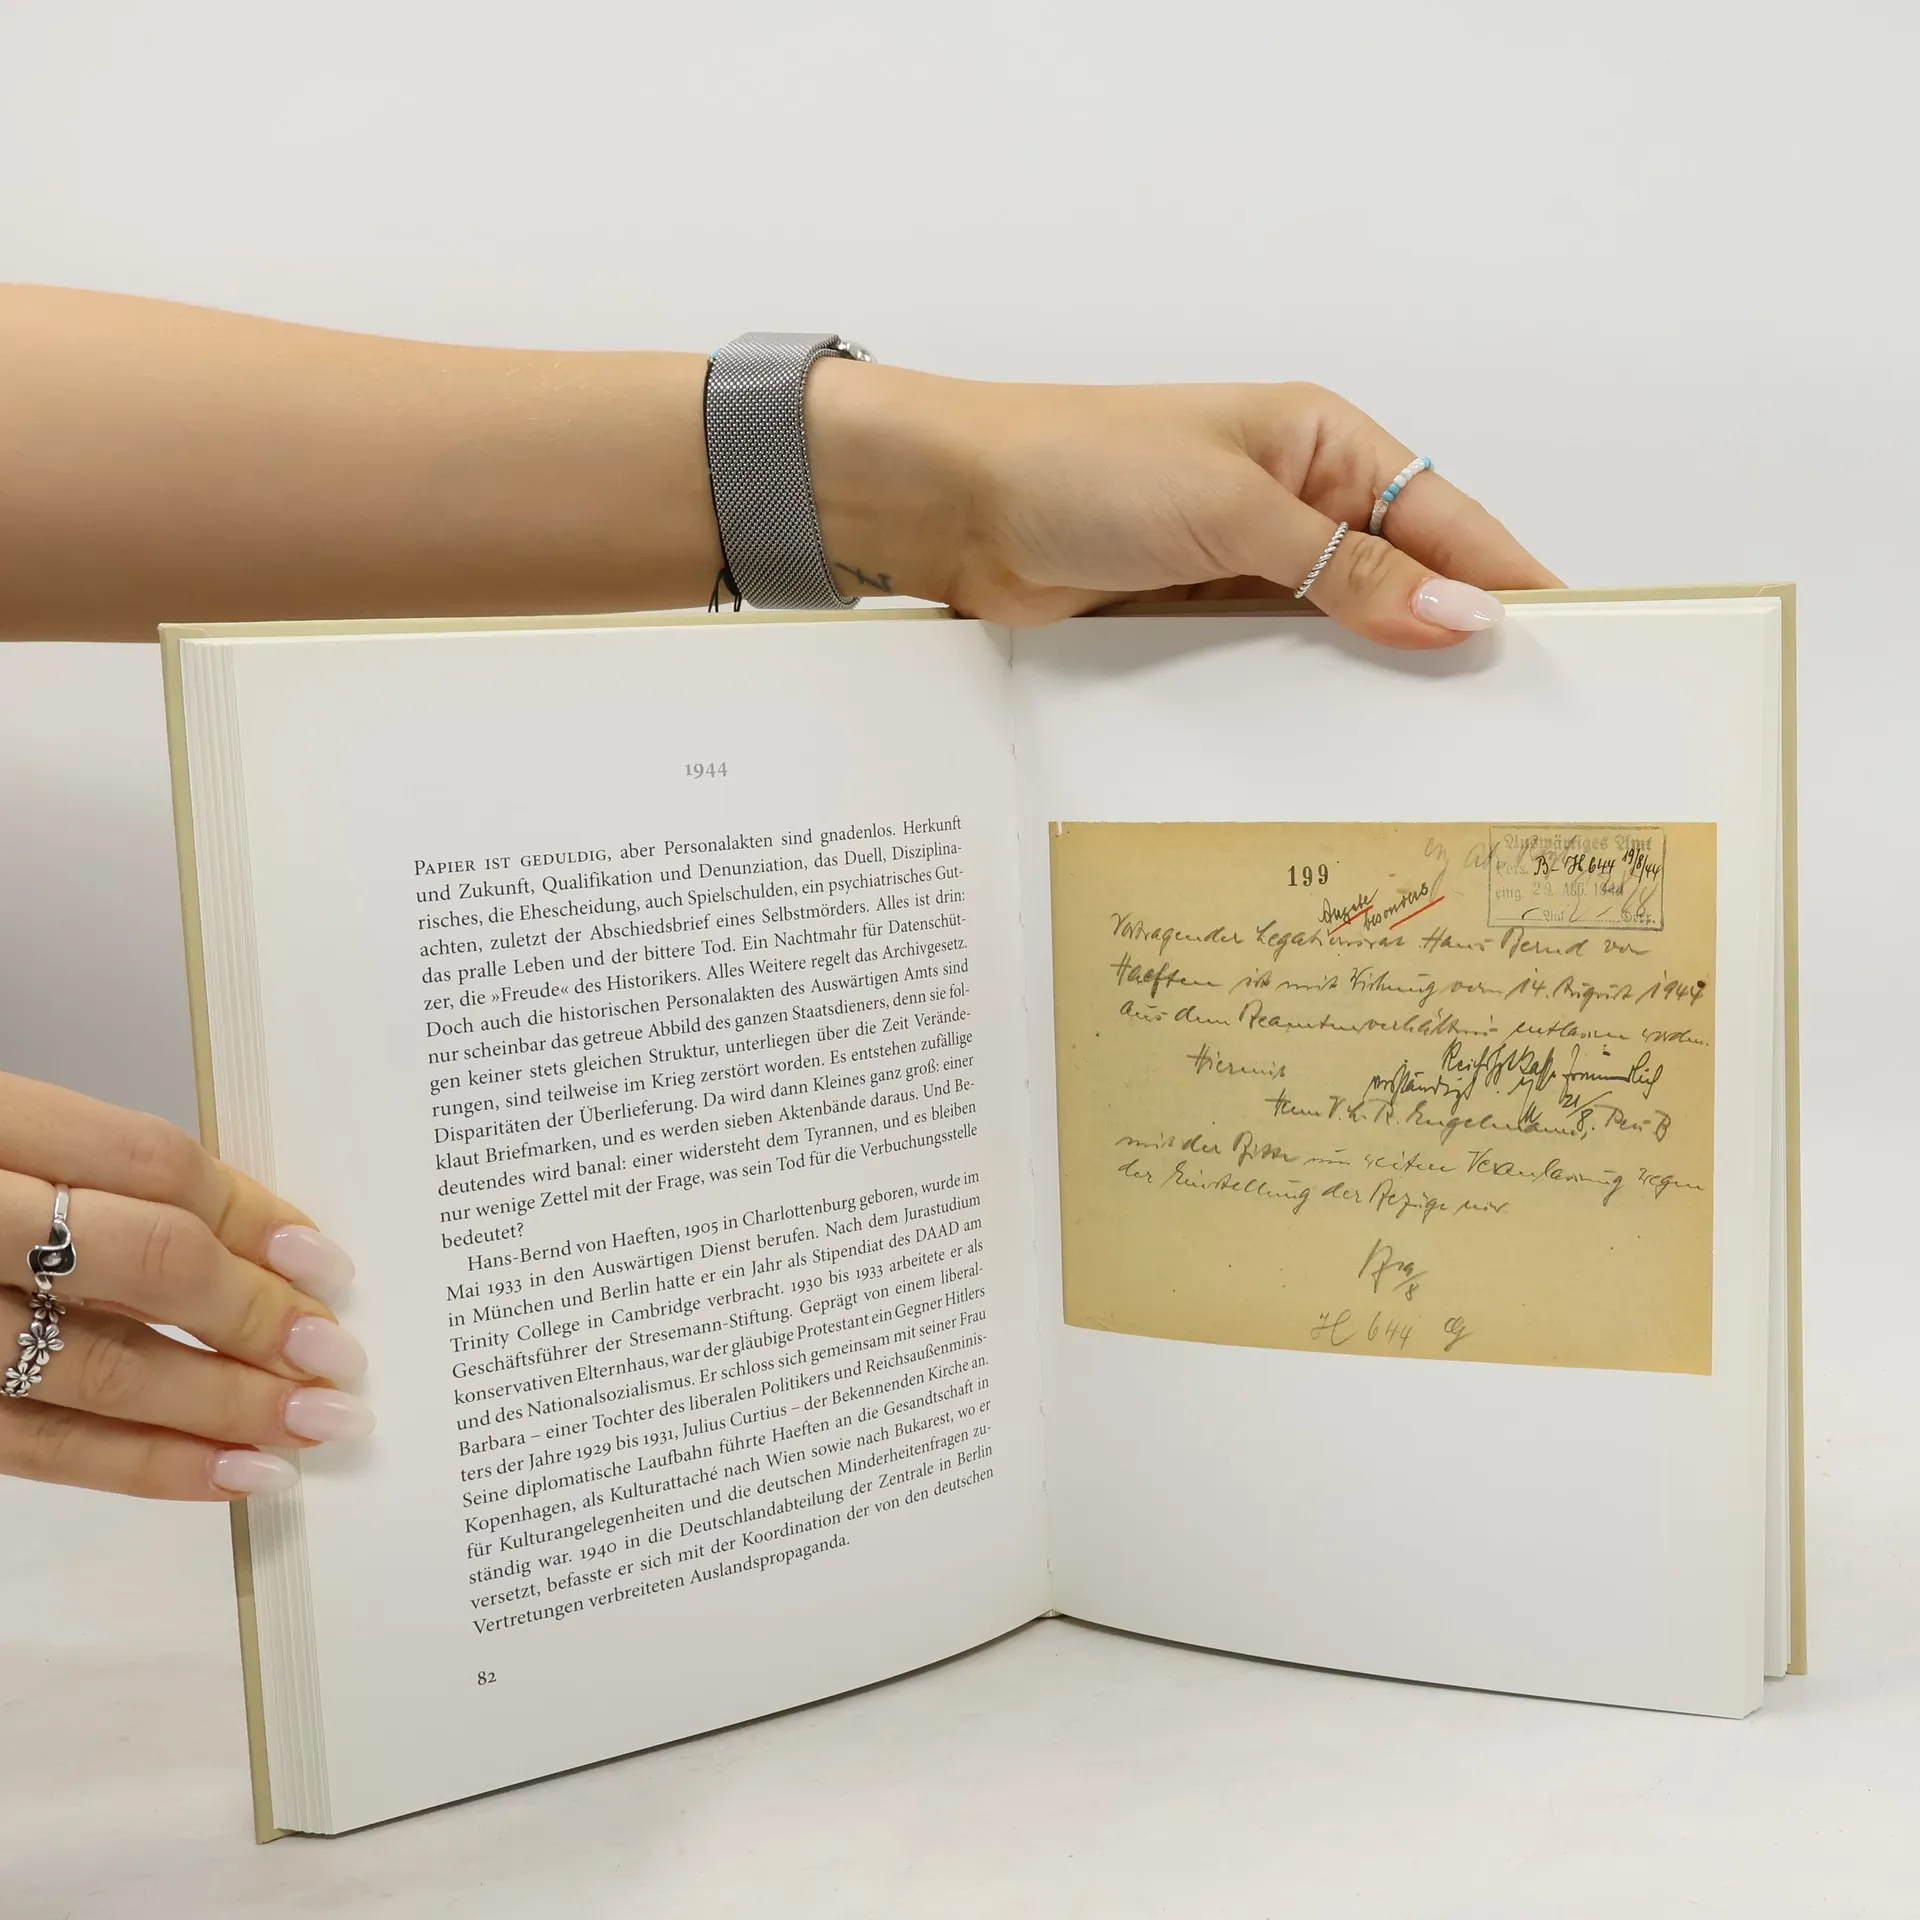 1944
PAPIER IST GEDULDIG, aber Personalakten sind gnadenlos. Herkunft
und Zukunft, Qualifikation und Denunziation, das Duell, Disziplina-
risches, die Ehescheidung, auch Spielschulden, ein psychiatrisches Gut-
achten, zuletzt der Abschiedsbrief eines Selbstmörders. Alles ist drin:
das pralle Leben und der bittere Tod. Ein Nachtmahr für Datenschüt-
zer, die »Freude« des Historikers. Alles Weitere regelt das Archivgesetz.
Doch auch die historischen Personalakten des Auswärtigen Amts sind
nur scheinbar das getreue Abbild des ganzen Staatsdieners, denn sie fol-
gen keiner stets gleichen Struktur, unterliegen über die Zeit Verände-
rungen, sind teilweise im Krieg zerstört worden. Es entstehen zufällige
Disparitäten der Überlieferung. Da wird dann Kleines ganz groß: einer
klaut Briefmarken, und es werden sieben Aktenbände daraus. Und Be-
deutendes wird banal: einer widersteht dem Tyrannen, und es bleiben
nur wenige Zettel mit der Frage, was sein Tod für die Verbuchungsstelle
bedeutet?
Hans-Bernd von Haeften, 1905 in Charlottenburg geboren, wurde im
Mai 1933 in den Auswärtigen Dienst berufen. Nach dem Jurastudium
in München und Berlin hatte er ein Jahr als Stipendiat des DAAD am
Trinity College in Cambridge verbracht. 1930 bis 1933 arbeitete er als
Geschäftsführer der Stresemann-Stiftung. Geprägt von einem liberal-
konservativen Elternhaus, war der gläubige Protestant ein Gegner Hitlers
und des Nationalsozialismus. Er schloss sich gemeinsam mit seiner Frau
Barbara – einer Tochter des liberalen Politikers und Reichsaußenminis-
ters der Jahre 1929 bis 1931, Julius Curtius – der Bekennenden Kirche an.
Seine diplomatische Laufbahn führte Haeften an die Gesandtschaft in
Kopenhagen, als Kulturattaché nach Wien sowie nach Bukarest, wo er
für Kulturangelegenheiten und die deutschen Minderheitenfragen zu-
ständig war. 1940 in die Deutschlandabteilung der Zentrale in Berlin
versetzt, befasste er sich mit der Koordination der von den deutschen
Vertretungen verbreiteten Auslandspropaganda.
82
Auswärtiges Amt
Pers. B- H 644 19/8/44
eing. 29. AUG. 1944
199
besonders
Vortragender Legationsrat Hans Bernd von
Haeften ist mit Wirkung vom 14. August 1944
aus dem Beamtenverhältnis entlassen worden.
Hiermit
Herrn V.L.R. Engelmann, Pers B
mit der Bitte um weitere Veranlassung wegen
der Einstellung der Bezüge
H 644